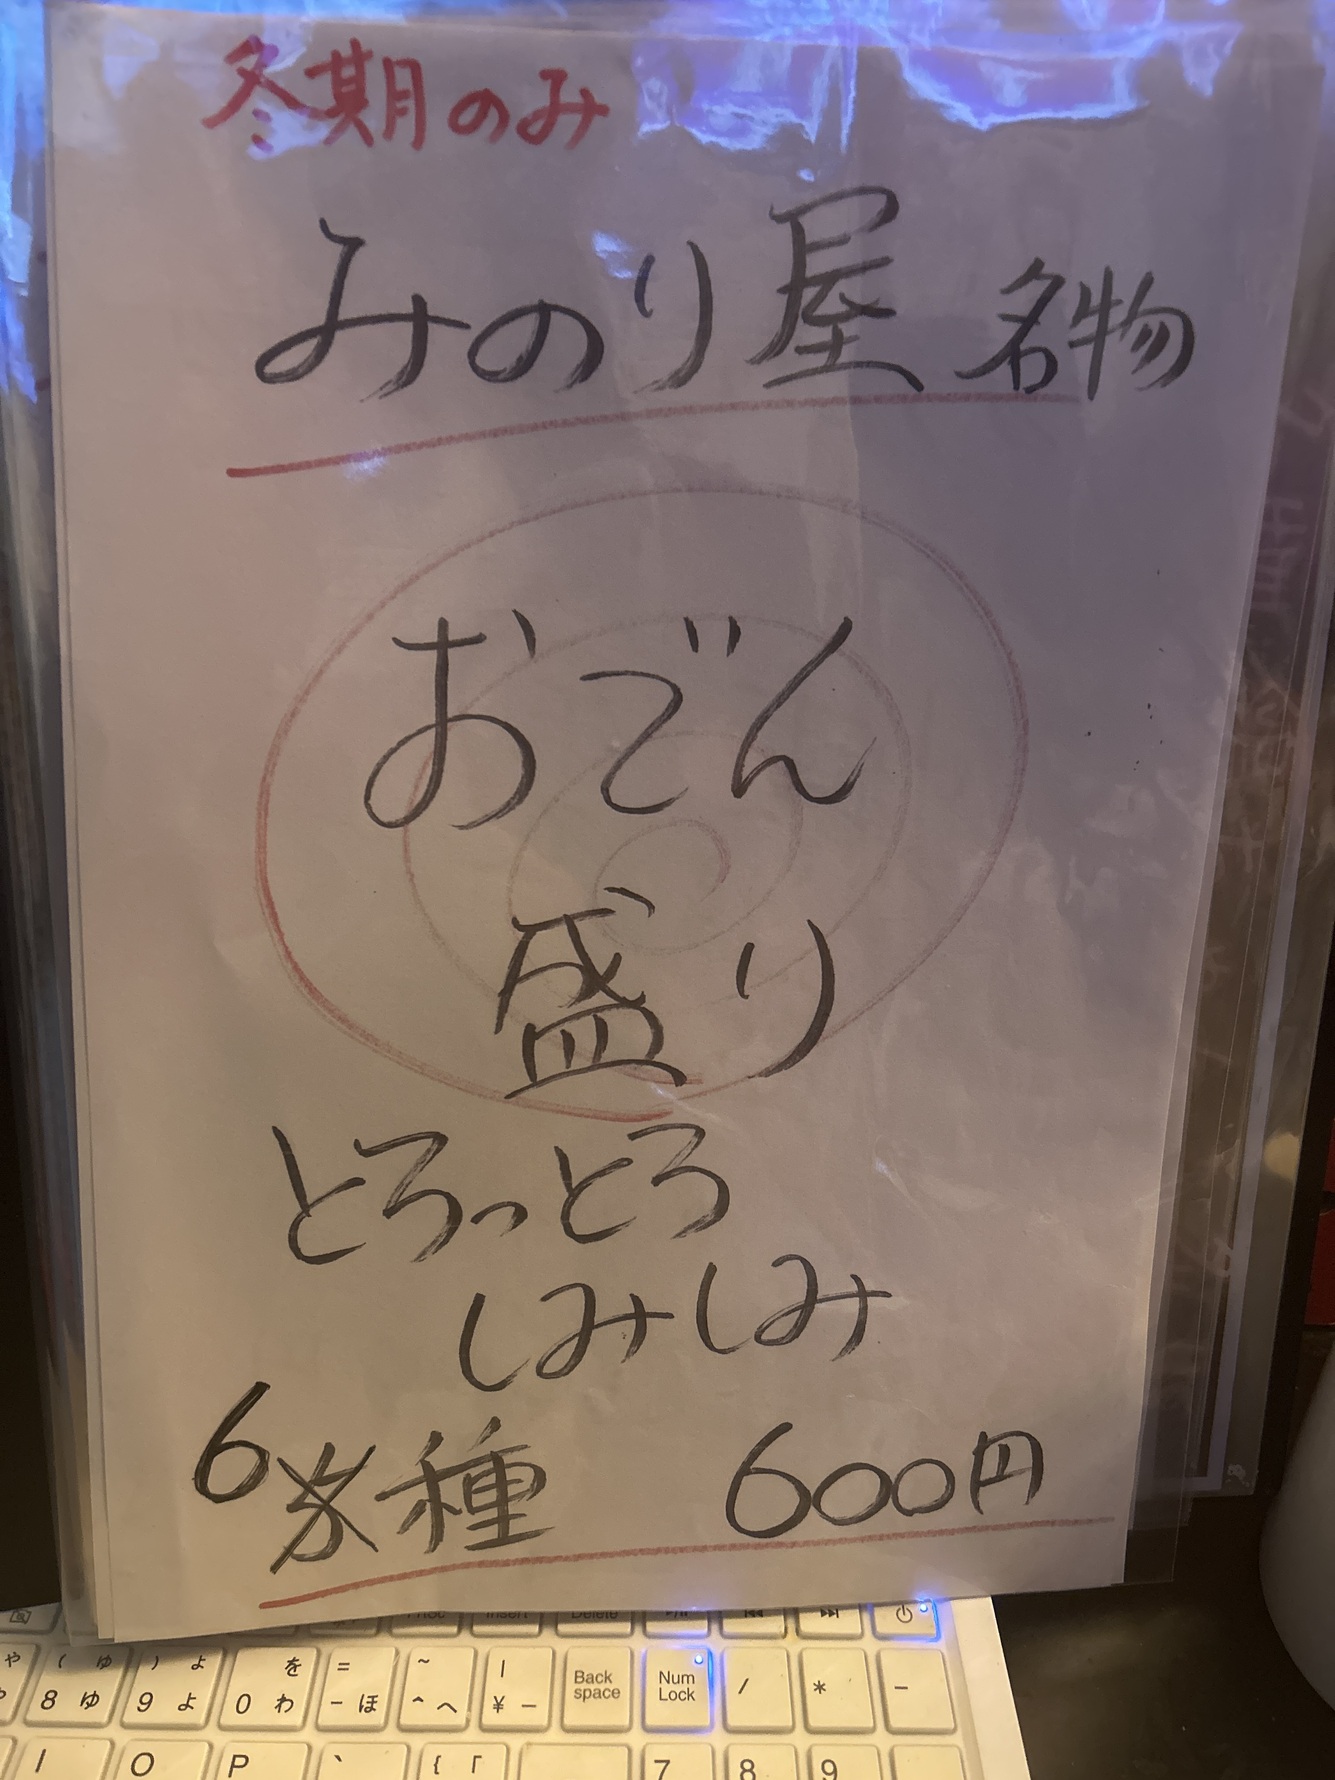 冬期のみ
みのり屋 名物
おでん
盛り
とろっとろ
しみしみ
6 種 600円
Insert Delete
や ( ゆ ) よ を = ~ |
8 ゆ 9 よ 0 わ - ほ ^ へ ¥ - Back space Num Lock / * -
I O P ` { 「 7 8 9